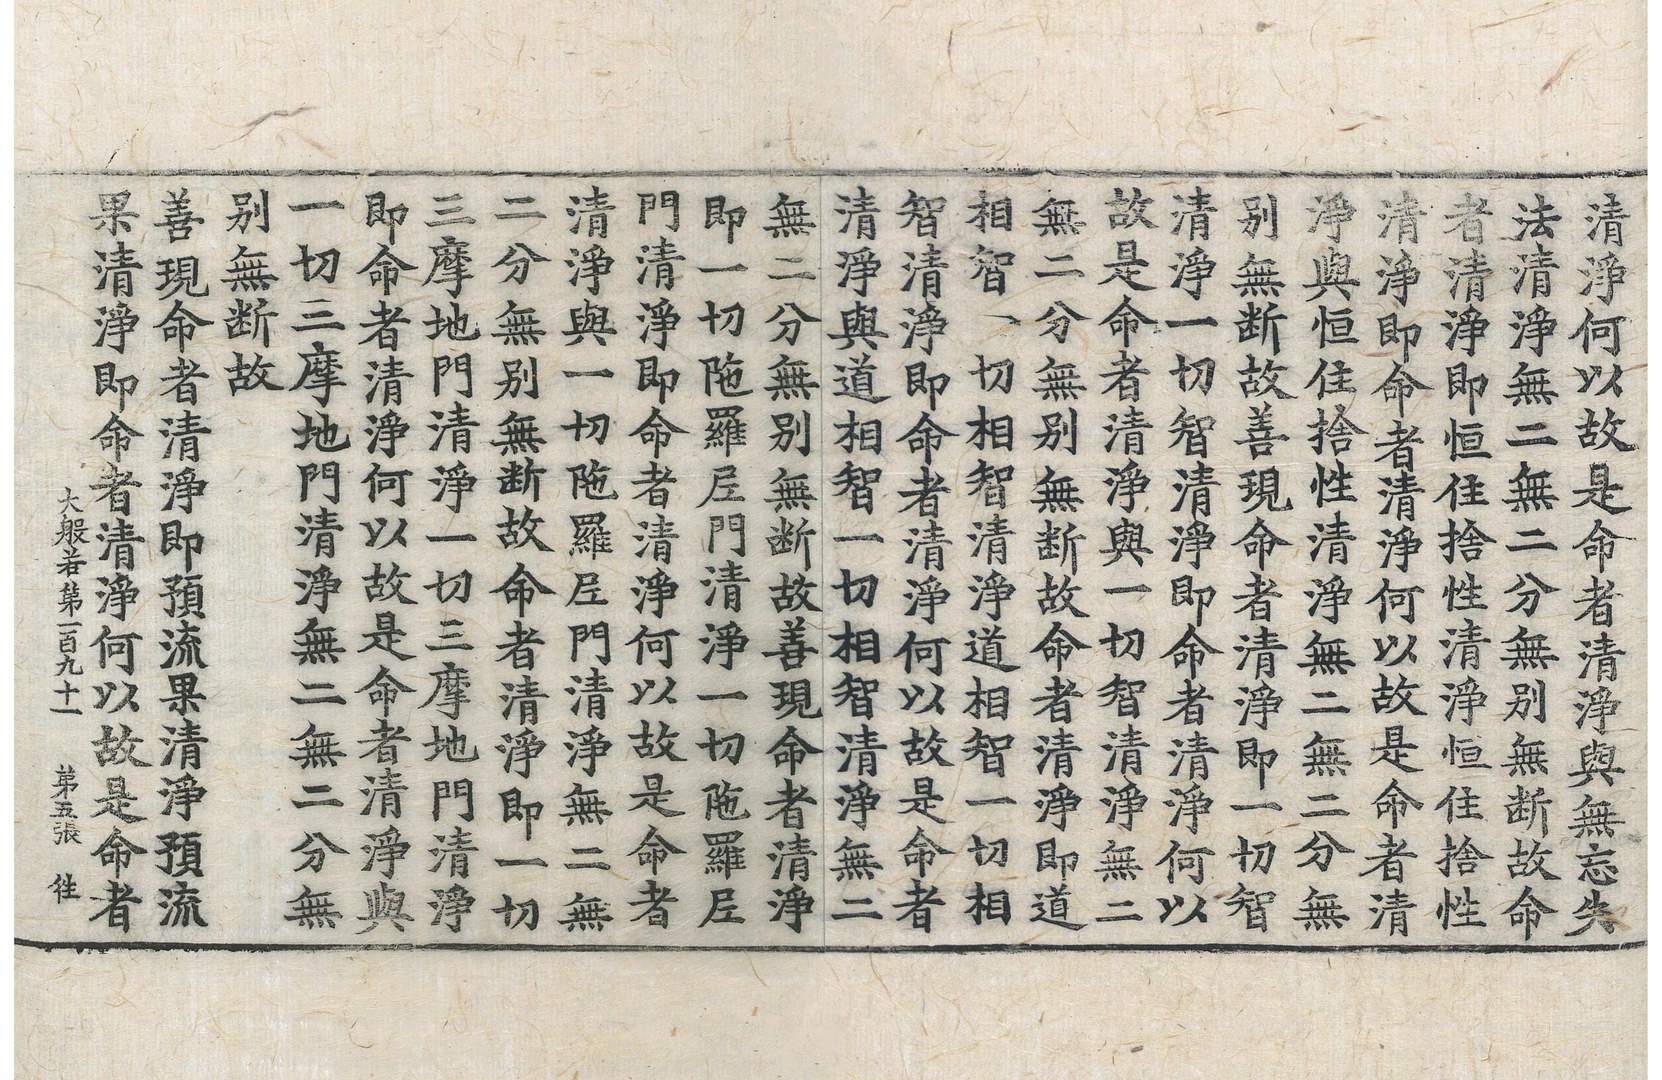 清淨何以故是命者清淨與無忘失
法清淨無二無二分無别無断故命
者清淨即恒住捨性清淨恒住捨性
清淨即命者清淨何以故是命者清
淨與恒住捨性清淨無二無二分無
别無断故善現命者清淨即一切智
清淨一切智清淨即命者清淨何以
故是命者清淨與一切智清淨無二
無二分無别無断故命者清淨即道
相智一切相智清淨道相智一切相
智清淨即命者清淨何以故是命者
清淨與道相智一切相智清淨無二
無二分無别無断故善現命者清淨
即一切陁羅尼門清淨一切陁羅尼
門清淨即命者清淨何以故是命者
清淨與一切陁羅尼門清淨無二無
二分無别無断故命者清淨即一切
三摩地門清淨一切三摩地門清淨
即命者清淨何以故是命者清淨與
一切三摩地門清淨無二無二分無
别無断故
善現命者清淨即預流果清淨預流
果清淨即命者清淨何以故是命者
大般若第一百九十一 第五張 徃